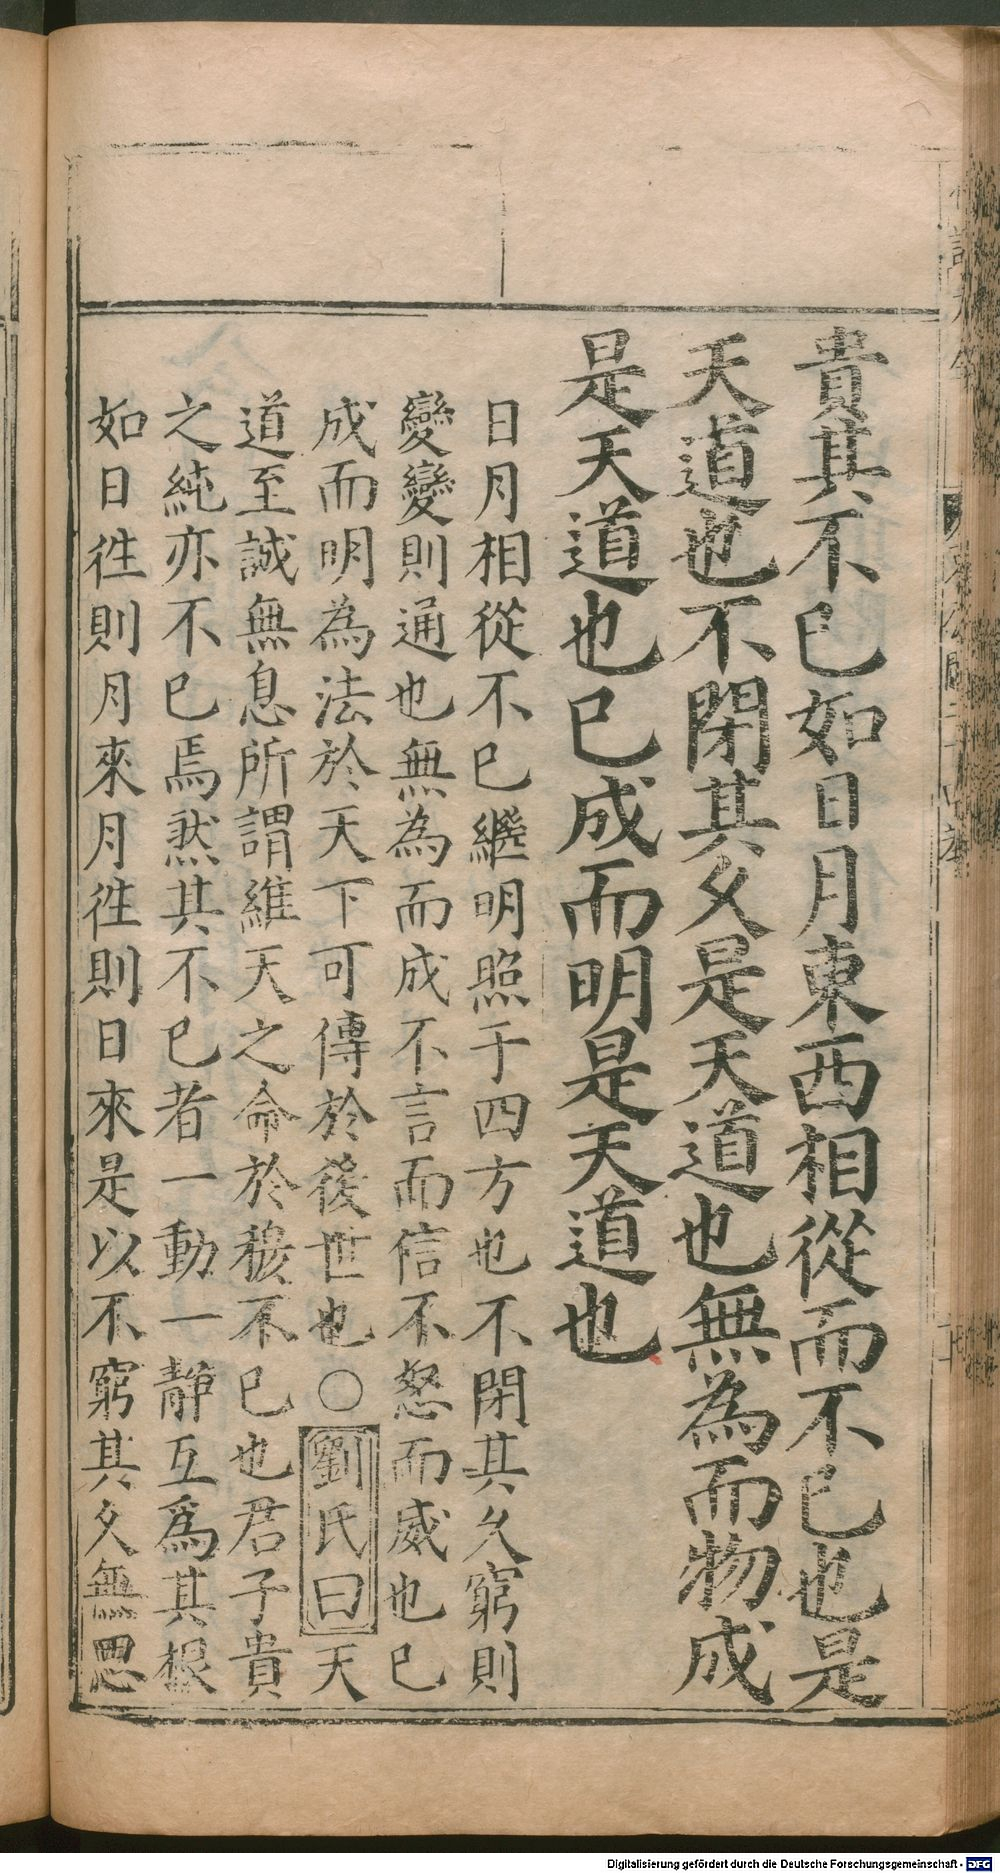 貴其不已如日月東西相從而不已也是
天道也不閉其久是天道也無為而物成
是天道也已成而明是天道也
日月相從不已繼明照于四方也不閉其久窮則
變變則通也無為而成不言而信不怒而威也已
成而明為法於天下可傳於後世也○劉氏曰天
道至誠無息所謂維天之命於穆不已也君子貴
之純亦不已焉然其不已者一動一靜互爲其根
如日徃則月來月徃則日來是以不窮其久無思
Digitalisierung gefördert durch die Deutsche Forschungsgemeinschaft - DFG